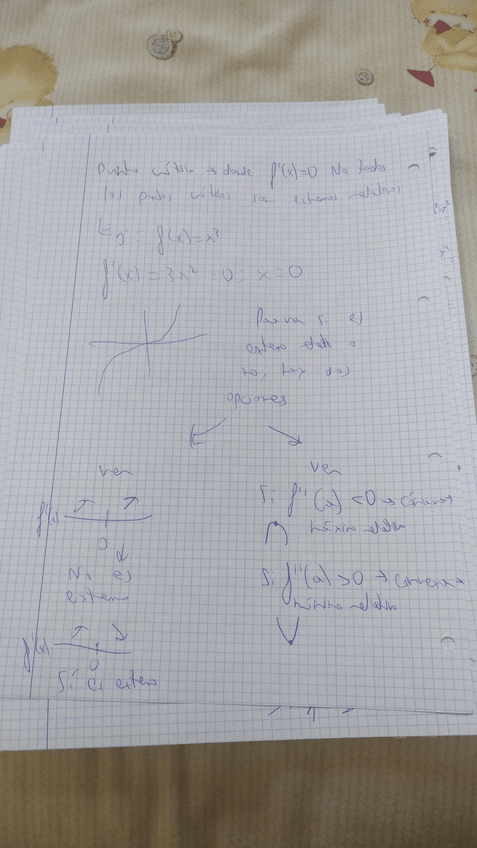 Punto crítico → donde f'(x)=0 No todos
los puntos críticos son extremos relativos
Ej: f(x)=x³
f'(x)=3x²=0; x=0
Para ver si es
extremo relativo o
no, hay dos
opciones
ver
f'(x)
0
No es
extremo
f'(x)
0
Sí es extremo
ver
Si f''(a)<0 → cóncava
máximo relativo
Si f''(a)>0 → convexa
mínimo relativo